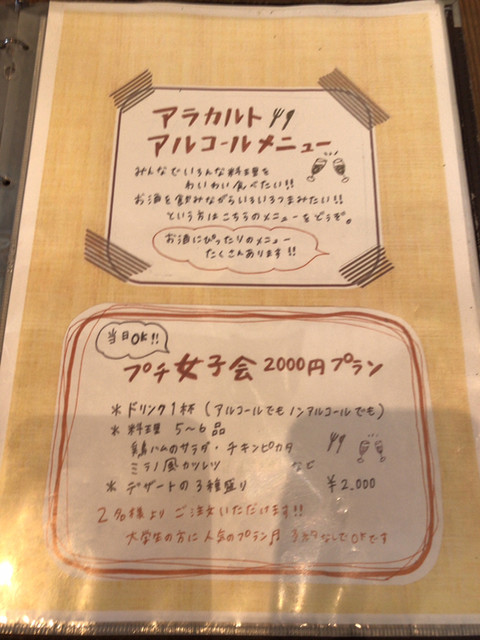 アラカルト
アルコールメニュー
みんなでいろんな料理を
わいわい食べたい!!
お酒を飲みながらいろいろつまみたい!!
という方はこちらのメニューをどうぞ。
お酒にぴったりのメニュー
たくさんあります!!
当日OK!!
プチ女子会2000円プラン
*ドリンク1杯(アルコールでもノンアルコールでも)
*料理 5〜6品
鶏ハムのサラダ・チキンピカタ
ミラノ風カツレツ など
*デザートの3種盛り ¥2,000
2名様よりご注文いただけます!!
大学生の方に人気のプラン なしでOKです